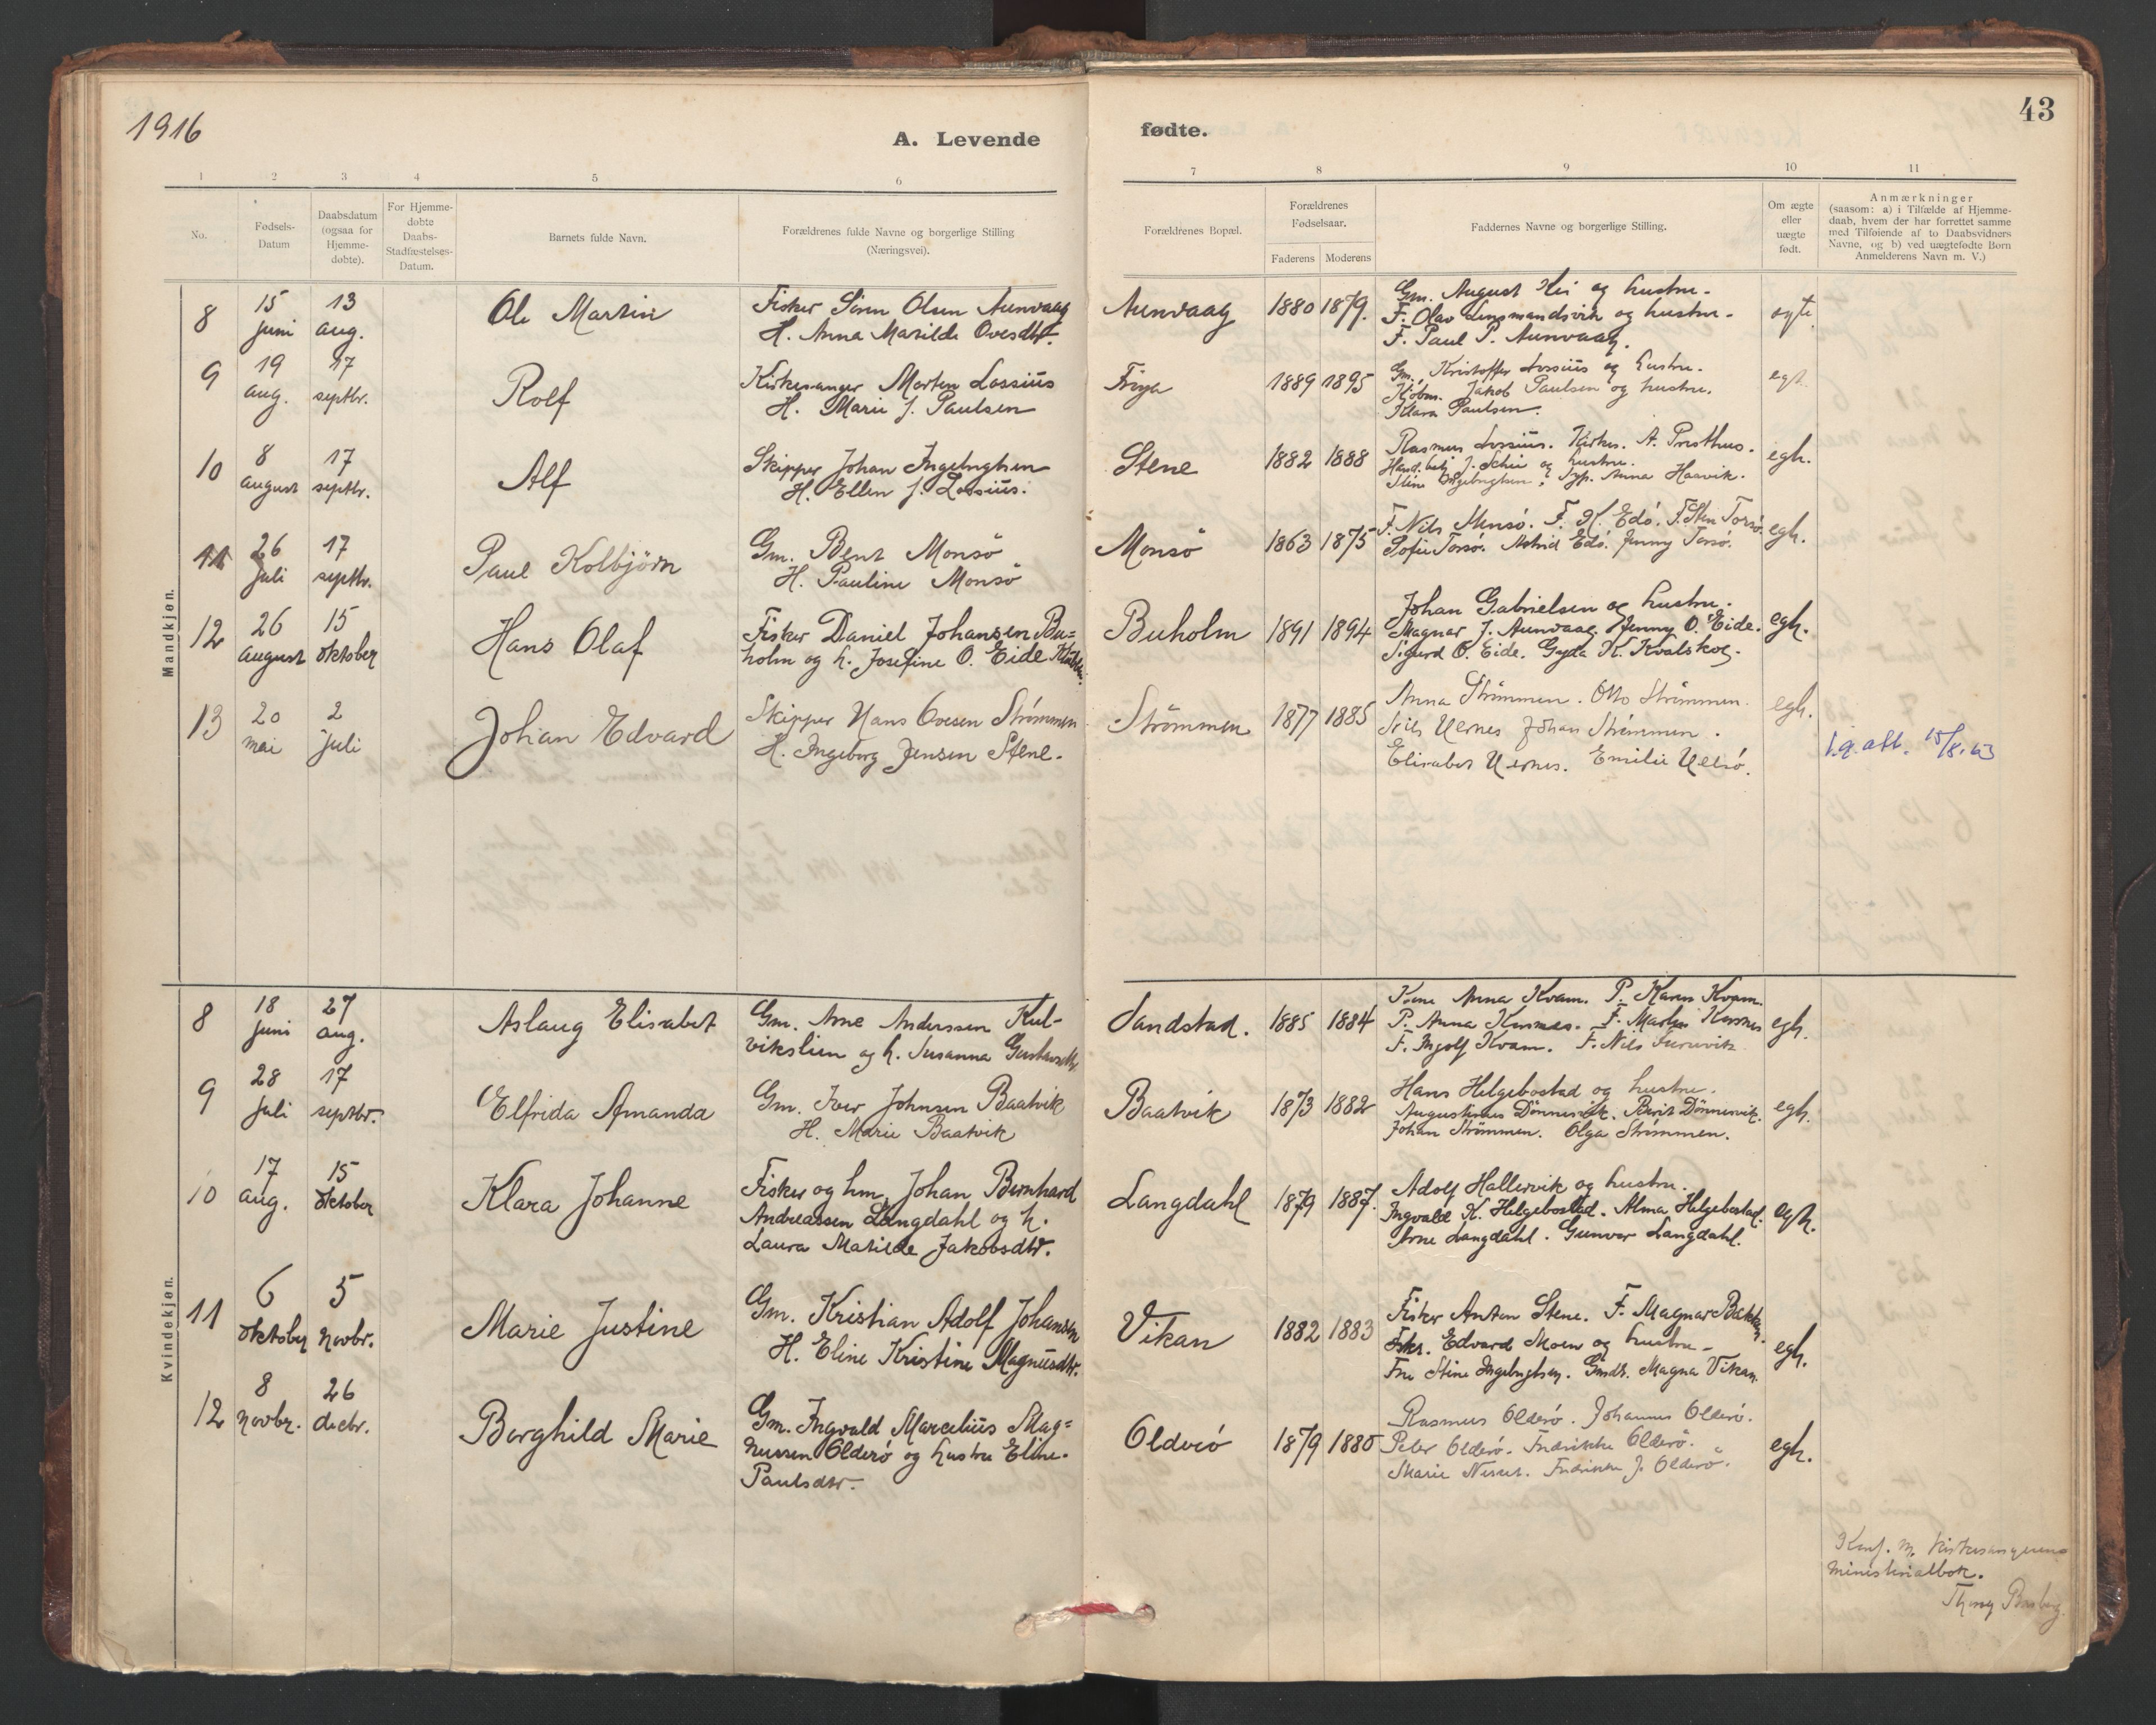 1916
A. Levende
fødte.
43
1
2
3
4
5
6
7
8
9
10
11
No.
Fødsels-
Datum
Daabsdatum
(ogsaa for
Hjemme-
døbte).
For Hjemme-
døbte
Daabs-
Stadfæstelses-
Datum.
Barnets fulde Navn.
Forældrenes fulde Navne og borgerlige Stilling
(Næringsvei).
Forældrenes Bopæl.
Forældrenes
Fødselsaar.
Faderens
Moderens
Faddernes Navne og borgerlige Stilling.
Om ægte
eller
uægte
født.
Anmærkninger
(saasom: a) i Tilfælde af Hjemme-
daab, hvem der har forrettet samme
med Tilføiende af to Daabsvidners
Navne, og b) ved uægtefødte Børn
Anmelderens Navn m. V.)
Mandkjøn.
8
15
juni
13
aug.
Ole Martin
Fisker Sören Olsen Aunvaag
H. Anna Matilde Ovesdtr.
Aunvaag
1880 1879.
Gm. August og hustru.
F. Olav Lensmandsvik og hustru.
F. Paul P. Aunvaag.
9
19
aug.
17
septbr.
Rolf
Kirkesanger Morten Lossius
H. Marie J. Paulsen
1889 1895
Gm. Kristoffer Lossius og hustru.
Kjøbm. Jakob Paulsen og hustru.
Klara Paulsen.
10
8
august
17
septbr.
Alf
Skipper Johan Ingebrigtsen
H. Ellen J. Lossius.
Stene
1882 1888
Rasmus Lossius. Kirkes. A. Presthus.
J. Schei og hustru.
Stine Ingebrigtsen. Anna Haavik.
egh.
11
26
juli
17
septbr.
Paul Kolbjörn
Gm. Bent Monsö
H. Pauline Monsö
Monsö
1863 1875
F. Nils Monsö. F. K. Edö. F. Sten Torsö.
Sofie Torsö. Astrid Edö. Jenny Torsö.
egh.
12
26
august
15
oktober
Hans Olaf
Fisker Daniel Johansen Bu=
holm og h. Josefine O. Eide
Buholm
1891 1894
Johan Gabrielsen og hustru.
Magnar J. Aunvaag. Jenny O. Eide.
Sigurd O. Eide. Gyda K. Kvalskog.
egh.
13
20
mai
2
juli
Johan Edvard
Skipper Hans Ovesen Strömmen
H. Ingeborg Jensen Stene.
Strömmen
1877 1885
Anna Strömmen. Otto Strömmen.
Nils Uernes Johan Strömmen.
Elisabet Uernes. Emilie
egh.
15/8.63
Kvindekjøn.
8
18
juni
27
aug.
Aslaug Elisabet
Gm. Arne Anderssen Kul-
vikslien og h. Susanna Gustavsdtr.
Sandstad.
1885 1884
Anna Kvam. P. Karen Kvam.
P. Anna F. Martin
F. Ingolf Kvam. F. Nils
egh.
9
28
juli
17
septbr.
Elfrida Amanda
Gm. Iver Johnsen Baatvik
H. Marie Baatvik
Baatvik
1873 1882
Hans Helgebostad og hustru.
Augustinus Dönnesvik. Berit Dönnesvik.
Johan Strömmen. Olga Strömmen.
egh.
10
17
aug.
15
oktober
Klara Johanne
Fisker og hm. Johan Bernhard
Andreassen Langdahl og h.
Laura Matilde Jakobsdtr.
Langdahl
1879 1887.
Adolf Hallervik og hustru.
Ingvald K. Helgebostad. Alma Helgebostad.
Arne Langdahl. Gunvor Langdahl.
egh.
11
6
oktober
5
novbr.
Marie Justine
Gm. Kristian Adolf Johansen
H. Eline Kristine Magnusdtr.
Vikan
1882 1883
Fisker Anton Stene. F. Magnar Bakken.
Edvard Moen og hustru.
Fru Stine Ingebrigtsen. Magna Vikan.
egh.
12
8
novbr.
26
decbr.
Borghild Marie
Gm. Ingvald Marcelius Mag=
nussen Olderö og hustru Eline
Paulsdtr.
Olderö
1879 1880
Rasmus Olderö. Johannes Olderö.
Peter Olderö. Fredrikke Olderö.
Marie J. Olderö.
egh.
Konf. m. kirkesangerens
ministerialbok.